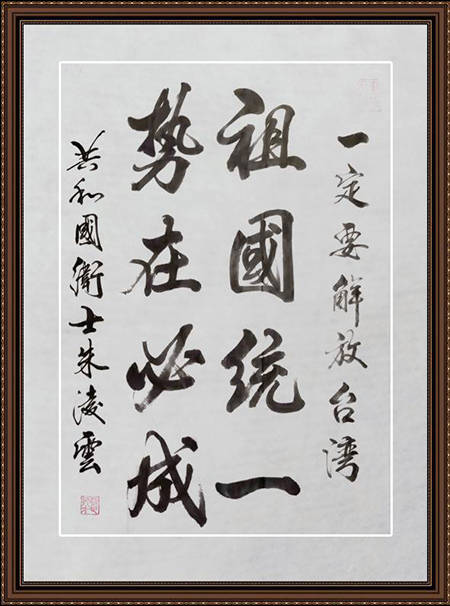 一定要解放台湾
祖國统一
势在必成
共和國衛士朱凌雲